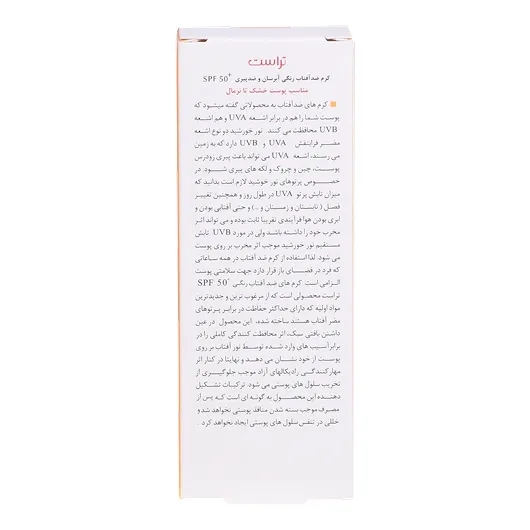 تراست
کرم ضدآفتاب رنگی آبرسان و ضدپیری SPF 50+
مناسب پوست خشک تا نرمال
کرم های ضدآفتاب به محصولاتی گفته میشود که
پوست شما را هم در برابر اشعه UVA و هم اشعه
UVB محافظت می کنند. نور خورشید دو نوع اشعه
مضر فرابنفش UVA و UVB دارد که به زمین
می رسند، اشعه UVA می تواند باعث پیری زودرس
پوست، چین و چروک و لکه های پیری شود. در
خصوص پرتوهای نور خورشید لازم است بدانید که
میزان تابش پرتو UVA در طول روز و همچنین تغییر
فصل ( تابستان و زمستان و ...) و حتی آفتابی بودن و
ابری بودن هوا فرآیندی تقریبا ثابت بوده و می تواند اثر
مخرب خود را داشته باشد ولی در مورد UVB تابش
مستقیم نور خورشید موجب اثر مخرب بر روی پوست
می شود. لذا استفاده از کرم ضد آفتاب در همه ساعاتی
که فرد در فضای باز قرار دارد جهت سلامتی پوست
الزامی است. کرم های ضد آفتاب رنگی SPF 50+
تراست محصولی است که از مرغوب ترین و جدیدترین
مواد اولیه که دارای حداکثر حفاظت در برابر پرتوهای
مضر آفتاب هستند ساخته شده، این محصول در عین
داشتن بافتی سبک، اثر محافظت کنندگی کاملی را در
برابر آسیب های وارد شده توسط نور آفتاب بر روی
پوست از خود نشان می دهد و نهایتا در کنار اثر
مهارکنندگی رادیکالهای آزاد موجب جلوگیری از
تخریب سلول های پوستی می شود. ترکیبات تشکیل
دهنده این محصول به گونه ای است که پس از
مصرف موجب بسته شدن منافذ پوستی نخواهد شد و
خللی در تنفس سلول های پوستی ایجاد نخواهد کرد .